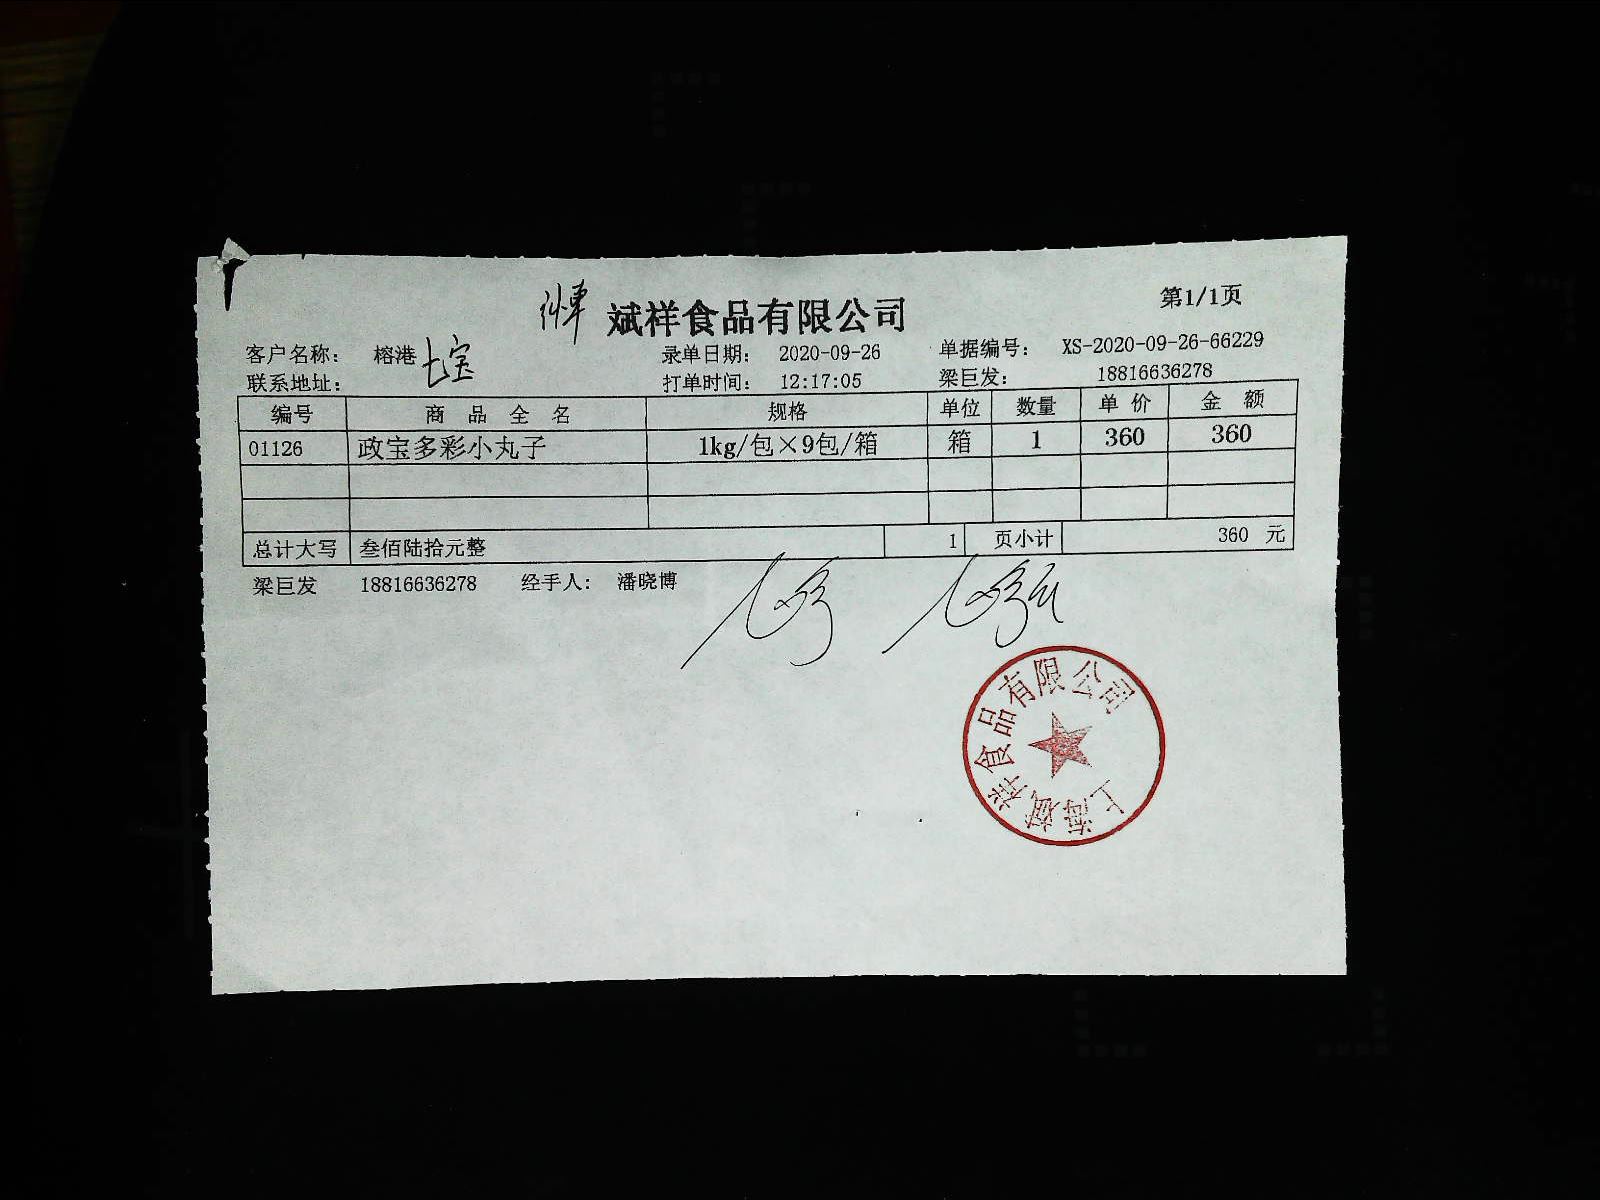 第1/1页
斌祥食品有限公司
客户名称: 榕港 七宝 录单日期: 2020-09-26 单据编号: XS-2020-09-26-66229
联系地址: 打单时间: 12:17:05 梁巨发: 18816636278
编号 商品全名 规格 单位 数量 单价 金额
01126 政宝多彩小丸子 1kg/包×9包/箱 箱 1 360 360
总计大写 叁佰陆拾元整 1 页小计 360 元
梁巨发 18816636278 经手人: 潘晓博
上海斌祥食品有限公司